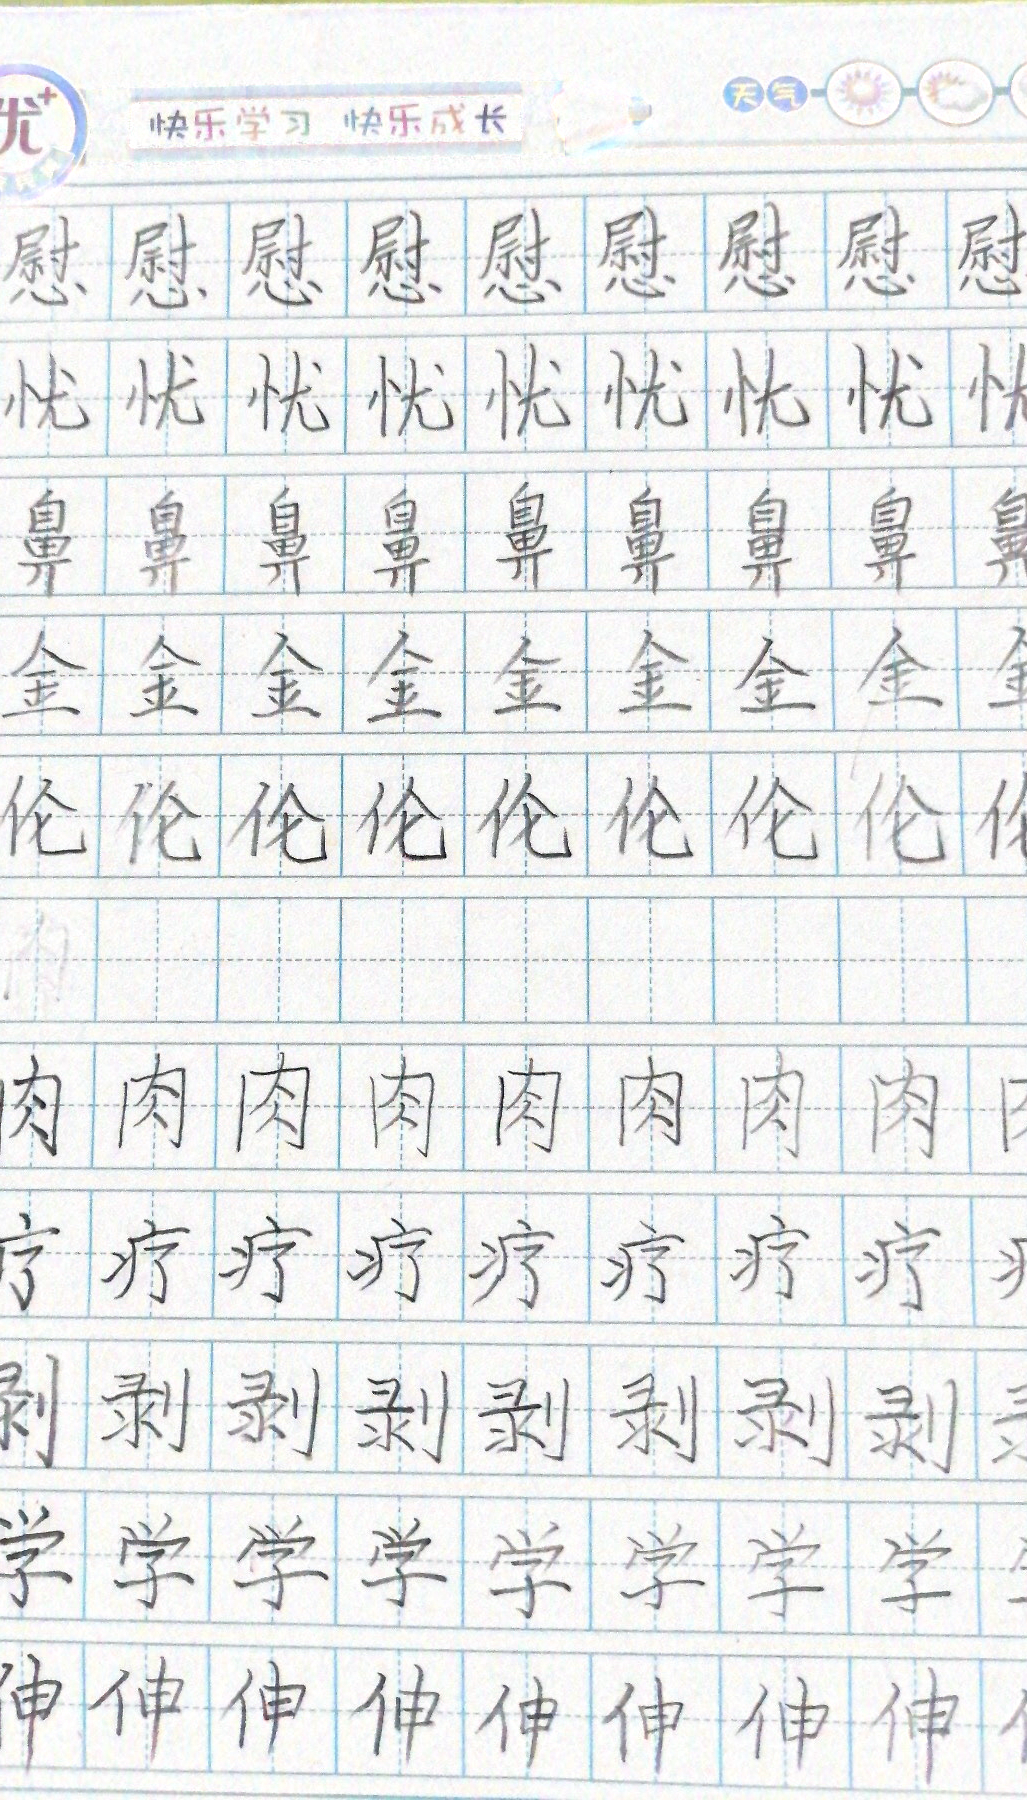 优+ 快乐学习 快乐成长 天气
慰慰慰慰慰慰慰慰慰
忧忧忧忧忧忧忧忧忧
鼻鼻鼻鼻鼻鼻鼻鼻鼻
金金金金金金金金金
伦伦伦伦伦伦伦伦伦
肉
肉肉肉肉肉肉肉肉
疗疗疗疗疗疗疗疗疗
剥剥剥剥剥剥剥剥
学学学学学学学学
伸伸伸伸伸伸伸伸